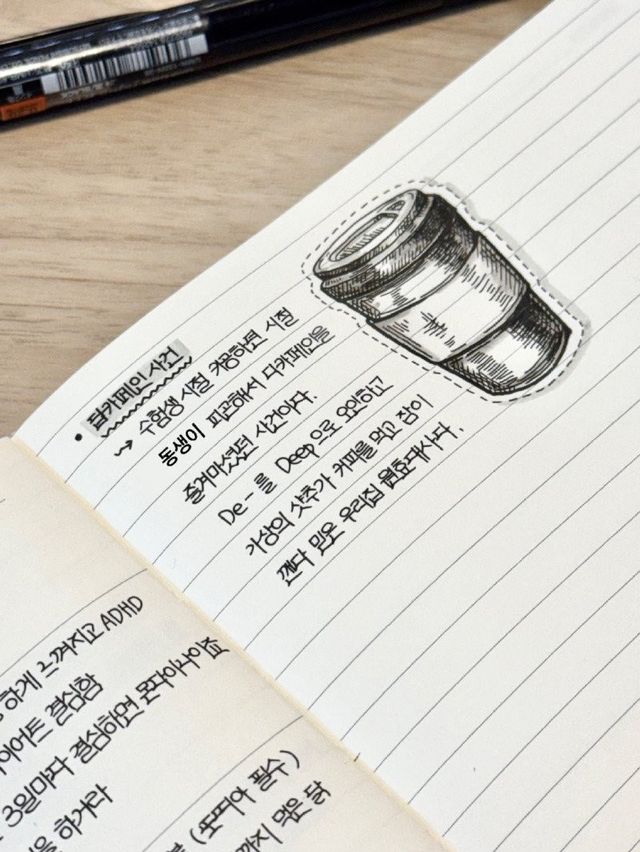 • 딥카페인 사건
→ 수험생 시절 카공하던 시절
동생이 피곤해서 디카페인을
즐겨마셨던 사건이다.
De-를 Deep으로 오인하고
가상의 샷추가 커피를 먹고 잠이
깬다 믿은 우리집 원효대사다.
하게 느껴지고 ADHD
이어트 결심함
3일마다 결심하면 몬다이나이죠
을 하거라
(또띠아 필수)
까지 먹은 닭